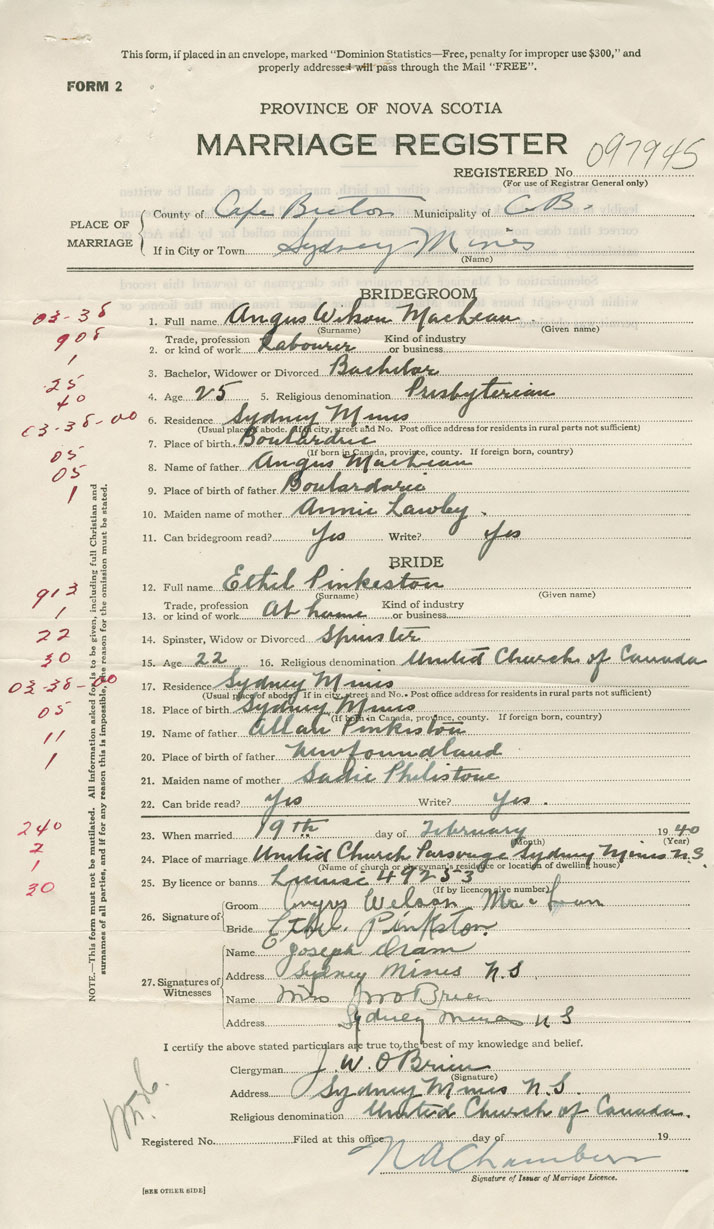 This form, if placed in an envelope, marked "Dominion Statistics—Free, penalty for improper use $300," and
properly addressed will pass through the Mail "FREE".
FORM 2
PROVINCE OF NOVA SCOTIA
MARRIAGE REGISTER
REGISTERED No. 097945
(For use of Registrar General only)
PLACE OF MARRIAGE
County of Cape Breton Municipality of C.B.
If in City or Town Sydney Mines
(Name)
BRIDEGROOM
03-38
1. Full name Angus Wilson MacLean
(Surname) (Given name)
908
2. Trade, profession or kind of work Labourer Kind of industry or business
1
3. Bachelor, Widower or Divorced Bachelor
25
4. Age 25 5. Religious denomination Presbyterian
40
6. Residence Sydney Mines
03-38-00
(Usual place of abode. If in city, street and No. Post office address for residents in rural parts not sufficient)
7. Place of birth Boulardrie
(If born in Canada, province, county. If foreign born, country)
05
8. Name of father Angus MacLean
05
9. Place of birth of father Boulardarie
1
10. Maiden name of mother Annie Lawley
11. Can bridegroom read? Yes Write? Yes
BRIDE
12. Full name Ethel Pinkeston
(Surname) (Given name)
913
13. Trade, profession or kind of work At home Kind of industry or business
1
14. Spinster, Widow or Divorced Spinster
22
15. Age 22 16. Religious denomination United Church of Canada
30
17. Residence Sydney Mines
03-38-00
(Usual place of abode. If in city, street and No. Post office address for residents in rural parts not sufficient)
18. Place of birth Sydney Mines
(If born in Canada, province, county. If foreign born, country)
05
19. Name of father Allan Pinkiston
11
20. Place of birth of father Newfoundland
1
21. Maiden name of mother Sadie Philistone
22. Can bride read? Yes Write? Yes.
240
23. When married 19th day of February 1940
(Month) (Year)
2
24. Place of marriage United Church Parsonage Sydney Mines N.S.
(Name of church or clergyman's residence or location of dwelling house)
1
25. By licence or banns License 49253
(If by licence give number)
30
26. Signature of
Groom Angus Welson MacLean
Bride Ethel Pinkston.
27. Signatures of Witnesses
Name Joseph Oram
Address Sydney Mines N.S.
Name Mrs JW O Brien
Address Sydney Mines N S
I certify the above stated particulars are true to the best of my knowledge and belief.
Clergyman J. W. O Brien
(Signature)
Address Sydney Mines N.S.
Religious denomination United Church of Canada.
Registered No. Filed at this office day of 19
N A Chambers
Signature of Issuer of Marriage Licence.
[SEE OTHER SIDE]
NOTE.—This form must not be mutilated. All Information asked for is to be given, including full Christian and
surnames of all parties, and if for any reason this is impossible, the reason for the omission must be stated.